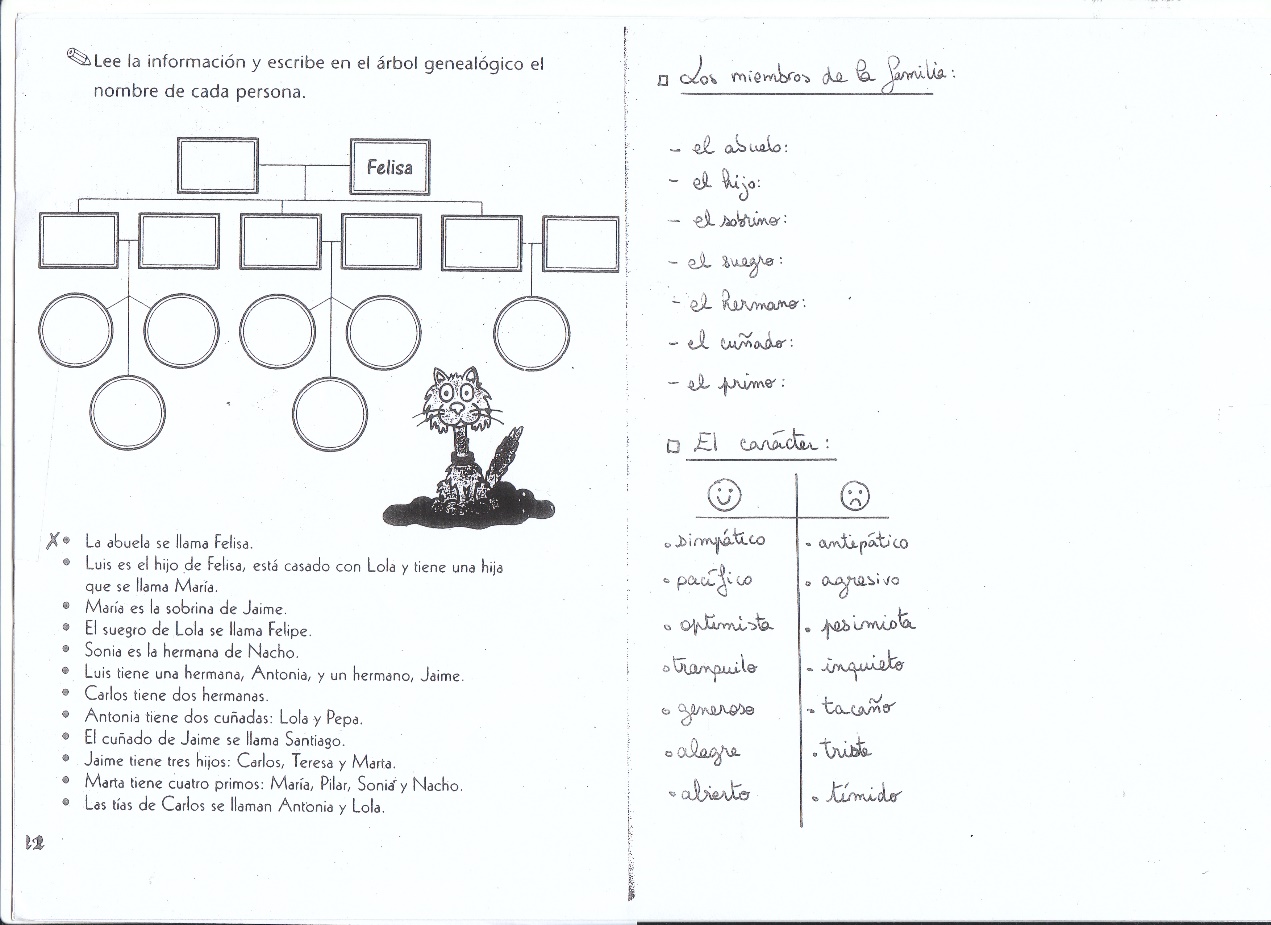 Lee la información y escribe en el árbol genealógico el
nombre de cada persona.
Felisa
La abuela se llama Felisa.
Luis es el hijo de Felisa, está casado con Lola y tiene una hija
que se llama María.
María es la sobrina de Jaime.
El suegro de Lola se llama Felipe.
Sonia es la hermana de Nacho.
Luis tiene una hermana, Antonia, y un hermano, Jaime.
Carlos tiene dos hermanas.
Antonia tiene dos cuñadas: Lola y Pepa.
El cuñado de Jaime se llama Santiago.
Jaime tiene tres hijos: Carlos, Teresa y Marta.
Marta tiene cuatro primos: María, Pilar, Sonia y Nacho.
Las tías de Carlos se llaman Antonia y Lola.
Los miembros de la familia:
- el abuelo:
- el hijo:
- el sobrino:
- el suegro:
- el hermano:
- el cuñado:
- el primo:
El carácter:
simpático
antipático
pacífico
agresivo
optimista
pesimista
tranquilo
inquieto
generoso
tacaño
alegre
triste
abierto
tímido